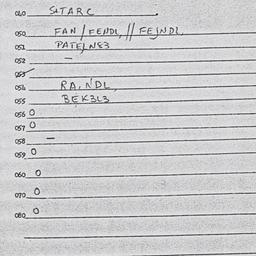 040 SITARC
050 FAN / FENDL // FEJNDL
051 PATELNE3
052 –
053
054 RA, N'DL
055 BEK3L3
056 O
057 O
058 –
059 O
060 O
070 O
080 O